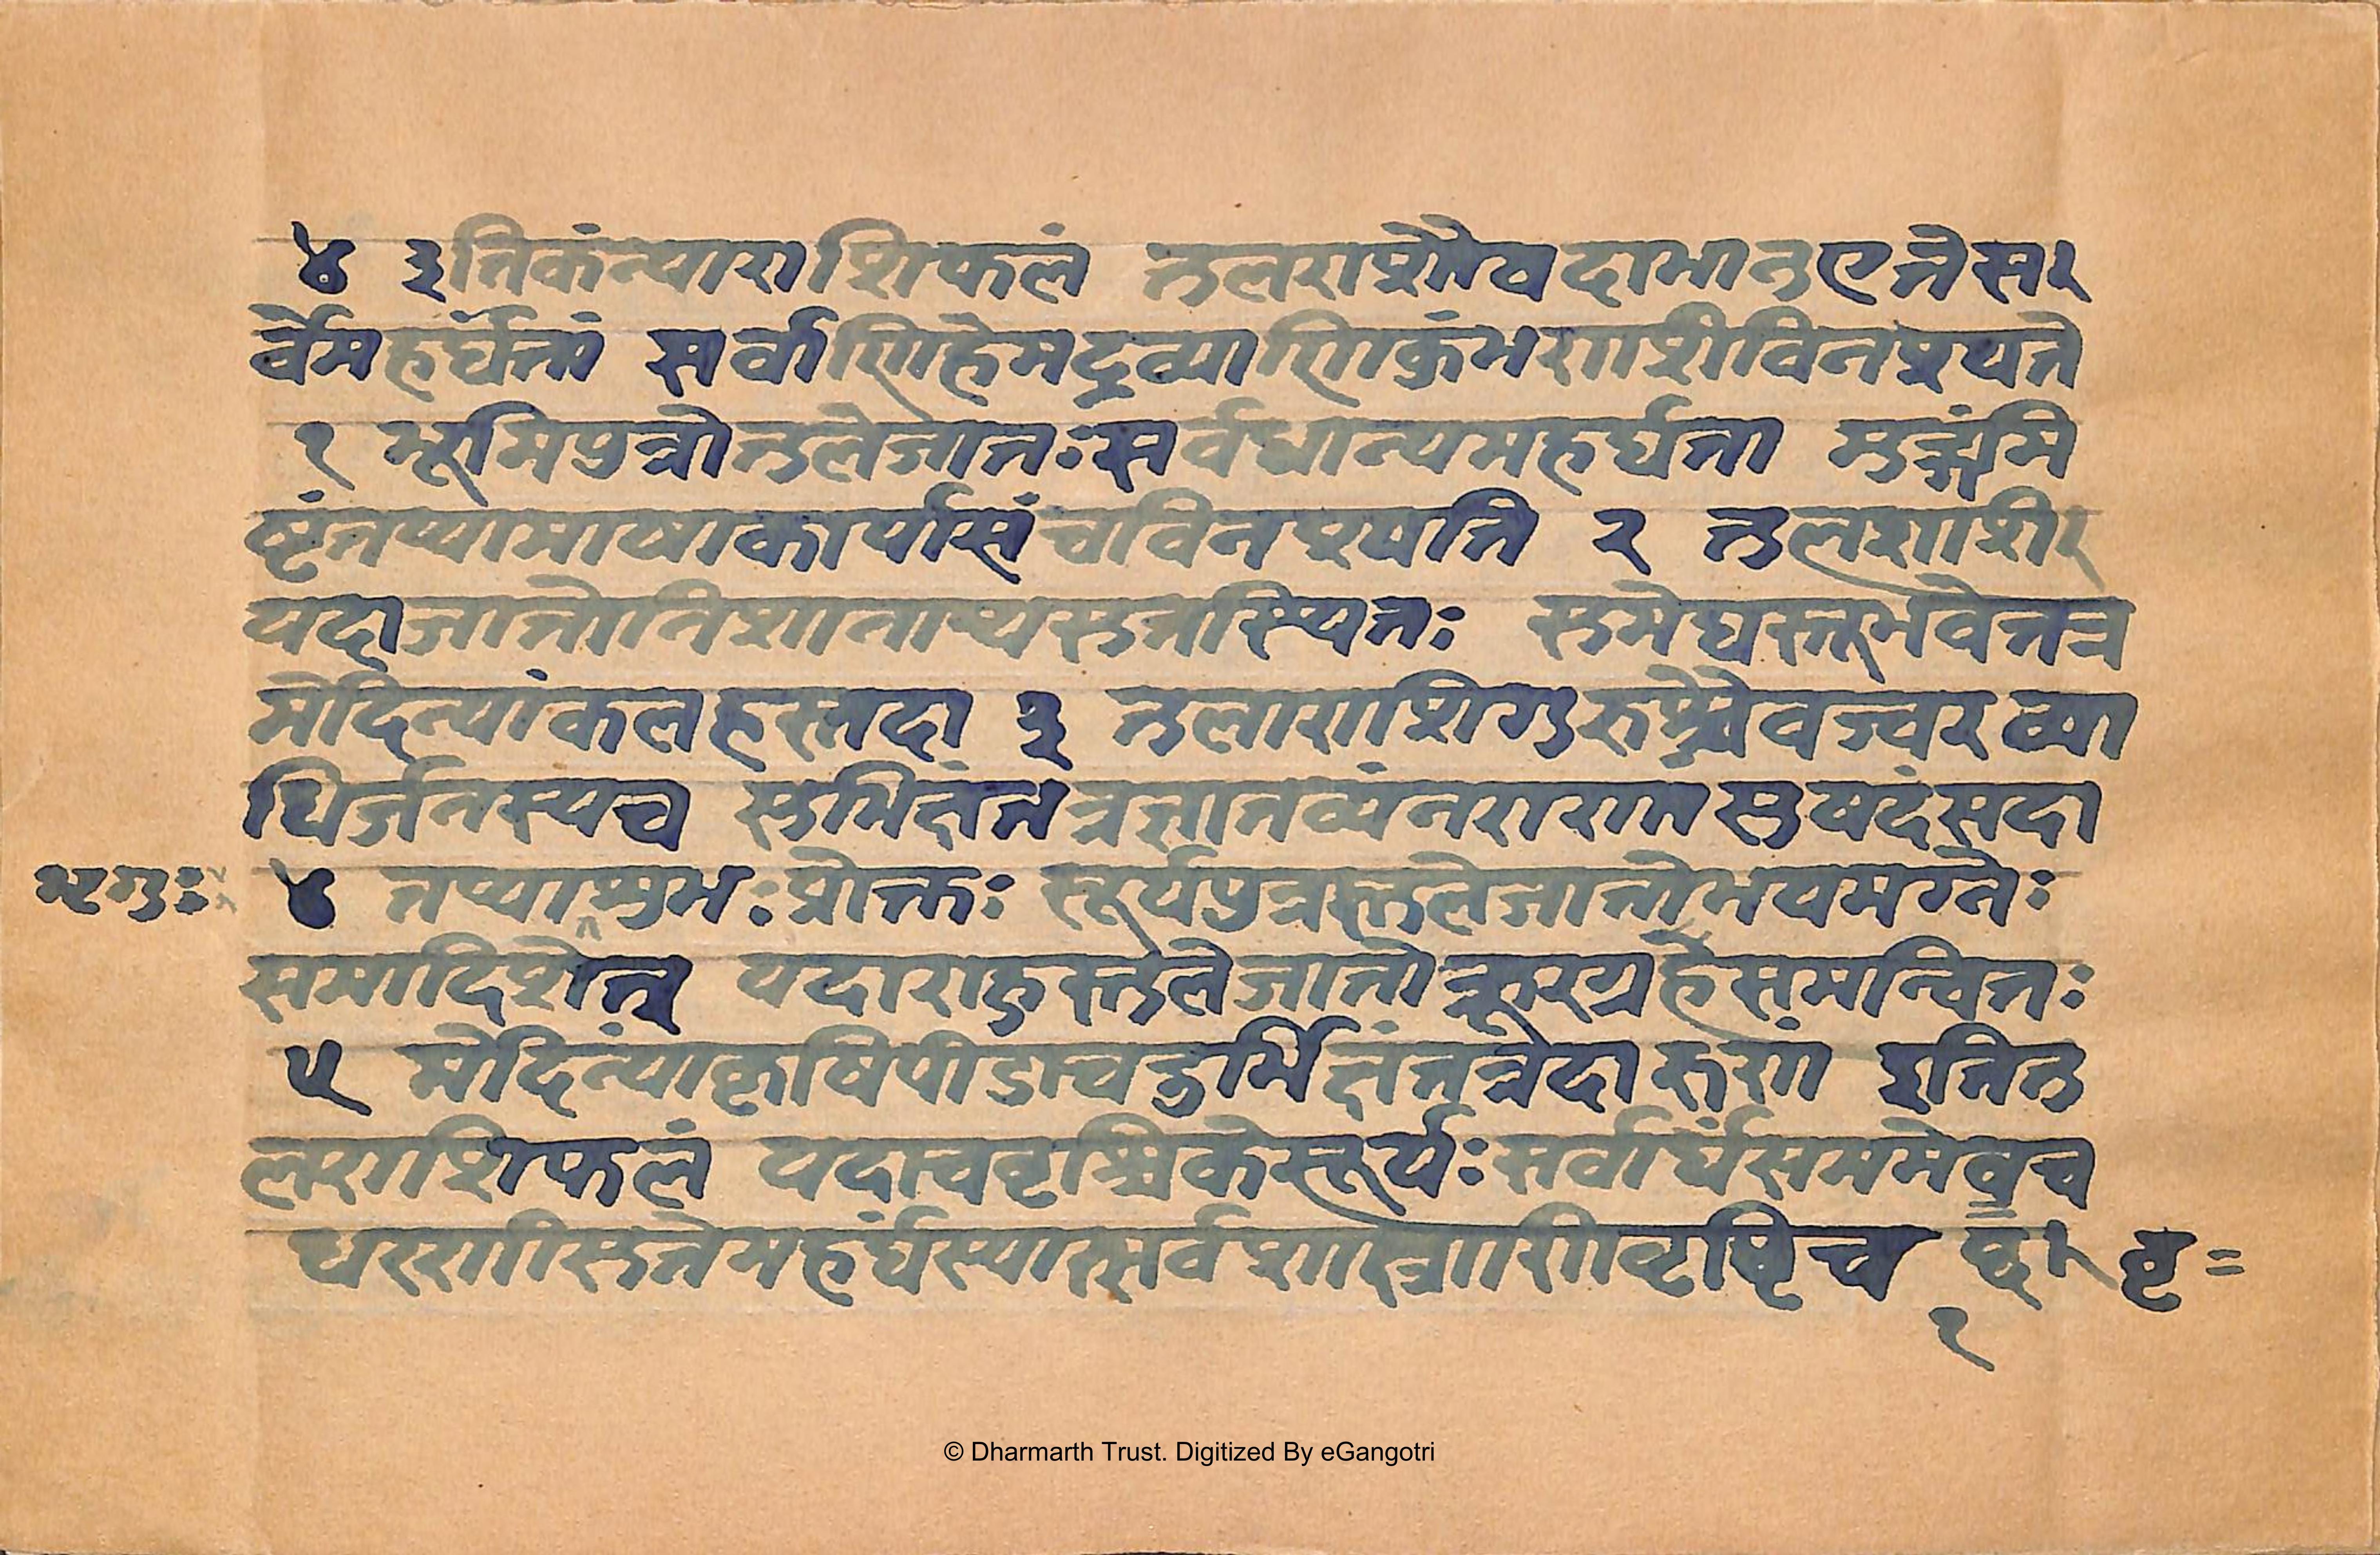 ४ इतिकंन्याराशिफलं तुलराशौवदाभानुएतेस
र्वेमहर्घतां सर्वाणिहेमद्रव्याणिकुंभराशीविनश्यते
१ भूमिपुत्रोतुलेजातःसर्वधान्यमहर्घता मुद्गंमि
ष्टंतथामाषाकार्पासंचविनश्यति २ तुलराशि
यदाजातोनिशानाथसुतास्थितः सुमेघस्तूभवेतत्र
मेदिन्यांकलहस्तदा ३ तुलाराशिगुरुश्चैवज्वरव्या
धिर्जनस्यच सुभिक्षंतत्रज्ञातव्यंनराराासुषदंसदा
भृगुः ४ तथाशुभःप्रोक्तः सूर्यपुत्रस्तुलेजातोभयमग्नेः
समादिशेत् यदाराहुस्तुलेजातोक्रूरग्रहैसमन्वितः
५ मेदिंन्याकृषिपीडाचदुर्भिक्षंतत्रेदारुणं इतितु
लराशिफलं यदाचवृश्चिकेसूर्यःसर्वार्घंसममेवच
धरणीसुतेमहर्घंस्यात्सर्वशास्त्राणीवृष्टिच ष्ट=
१
© Dharmarth Trust. Digitized By eGangotri